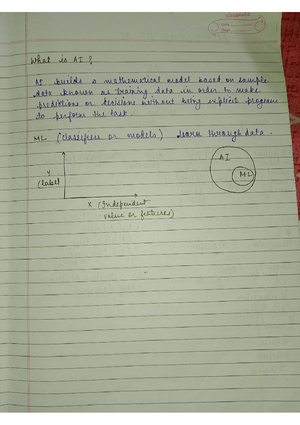 What is AI ?
AI builds a mathematical model based on sample
data known as training data in order to make
predictions or decisions without being explicit program
to perform the task.
ML (classifiers or models) learn through data.
AI
ML
Y
(label)
X (Independent
value or features)